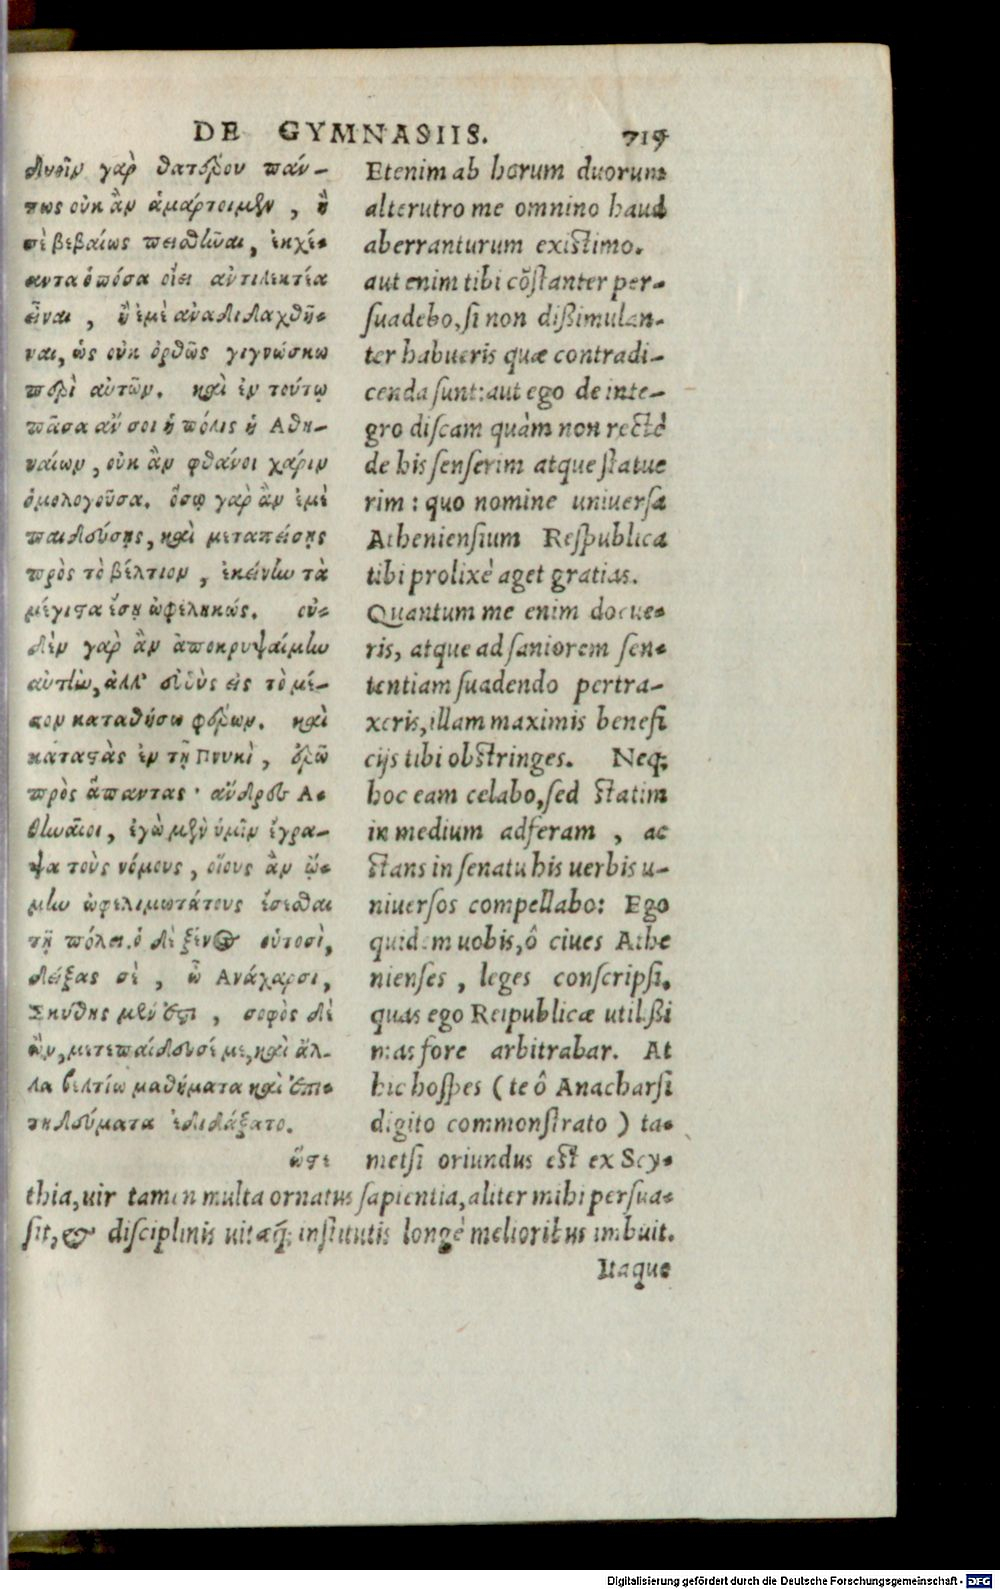 DE GYMNASIIS. 719
δυοῖν γὰρ θατέρου πάν-
τως οὐκ ἂν ἁμάρτοιμεν, ἢ
σὲ βεβαίως πειθῆναι, ἐκχέ-
αντα ὁπόσα οἴει ἀντιλεκτέα
εἶναι, ἢ ἐμὲ ἀναδιδαχθῆ-
ναι, ὡς οὐκ ὀρθῶς γιγνώσκω
περὶ αὐτῶν. καὶ ἐν τούτῳ
πᾶσα ἄν σοι ἡ πόλις ἡ Ἀθη-
ναίων, οὐκ ἂν φθάνοι χάριν
ὁμολογοῦσα. ὅσῳ γὰρ ἂν ἐμὲ
παιδεύσῃς, καὶ μεταπείσῃς
πρὸς τὸ βέλτιον, ἐκείνην τὰ
μέγιστα ἔσῃ ὠφεληκώς. οὐ-
δὲν γὰρ ἂν ἀποκρυψαίμην
αὐτὴν, ἀλλ' εὐθὺς εἰς τὸ μέ-
σον καταθήσω φέρων. καὶ
καταστὰς ἐν τῇ Πνυκὶ, ἐρῶ
πρὸς ἅπαντας· ἄνδρες Ἀ-
θηναῖοι, ἐγὼ μὲν ὑμῖν ἔγρα-
ψα τοὺς νόμους, οἵους ἂν ᾤ-
μην ὠφελιμωτάτους ἔσεσθαι
τῇ πόλει. ὁ δὲ ξένος οὑτοσὶ,
δείξας σὲ, ὦ Ἀνάχαρσι,
Σκύθης μέν ἐστι, σοφὸς δὲ
ὢν, μετεπαίδευσέ με, καὶ ἄλ-
λα βελτίω μαθήματα καὶ ἐπι-
τηδεύματα ἐδιδάξατο.
ὥστε
Etenim ab horum duorum
alterutro me omnino haud
aberranturum existimo.
aut enim tibi cõstanter per-
suadebo, si non dissimulan-
ter habueris quæ contradi-
cenda sunt: aut ego de inte-
gro discam quàm non rectè
de his senserim atque statue
rim: quo nomine uniuersa
Atheniensium Respublica
tibi prolixè aget gratias.
Quantum me enim docue-
ris, atque ad saniorem sen-
tentiam suadendo pertra-
xeris, illam maximis benefi
cijs tibi obstringes. Neq;
hoc eam celabo, sed statim
in medium adferam, ac
stans in senatu his uerbis u-
niuersos compellabo: Ego
quidem uobis, ô ciues Athe
nienses, leges conscripsi,
quas ego Reipublicæ utilissi
mas fore arbitrabar. At
hic hospes (te ô Anacharsi
digito commonstrato) ta-
metsi oriundus est ex Scy-
thia, uir tamen multa ornatus sapientia, aliter mihi persua-
sit, & disciplinis uitæq; institutis longè melioribus imbuit.
Itaque
Digitalisierung gefördert durch die Deutsche Forschungsgemeinschaft - DFG